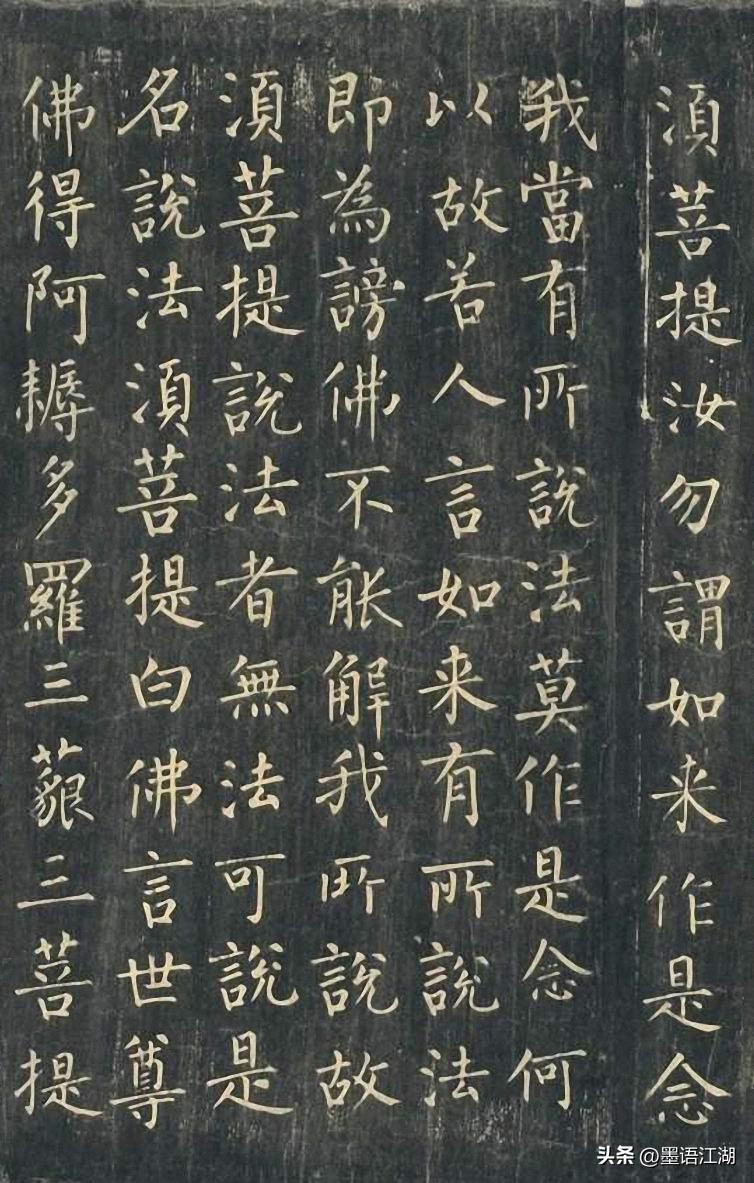 須菩提汝勿謂如来作是念
我當有所說法莫作是念何
以故若人言如来有所說法
即為謗佛不能解我所說故
須菩提說法者無法可說是
名說法須菩提白佛言世尊
佛得阿耨多羅三藐三菩提
头条 @墨语江湖